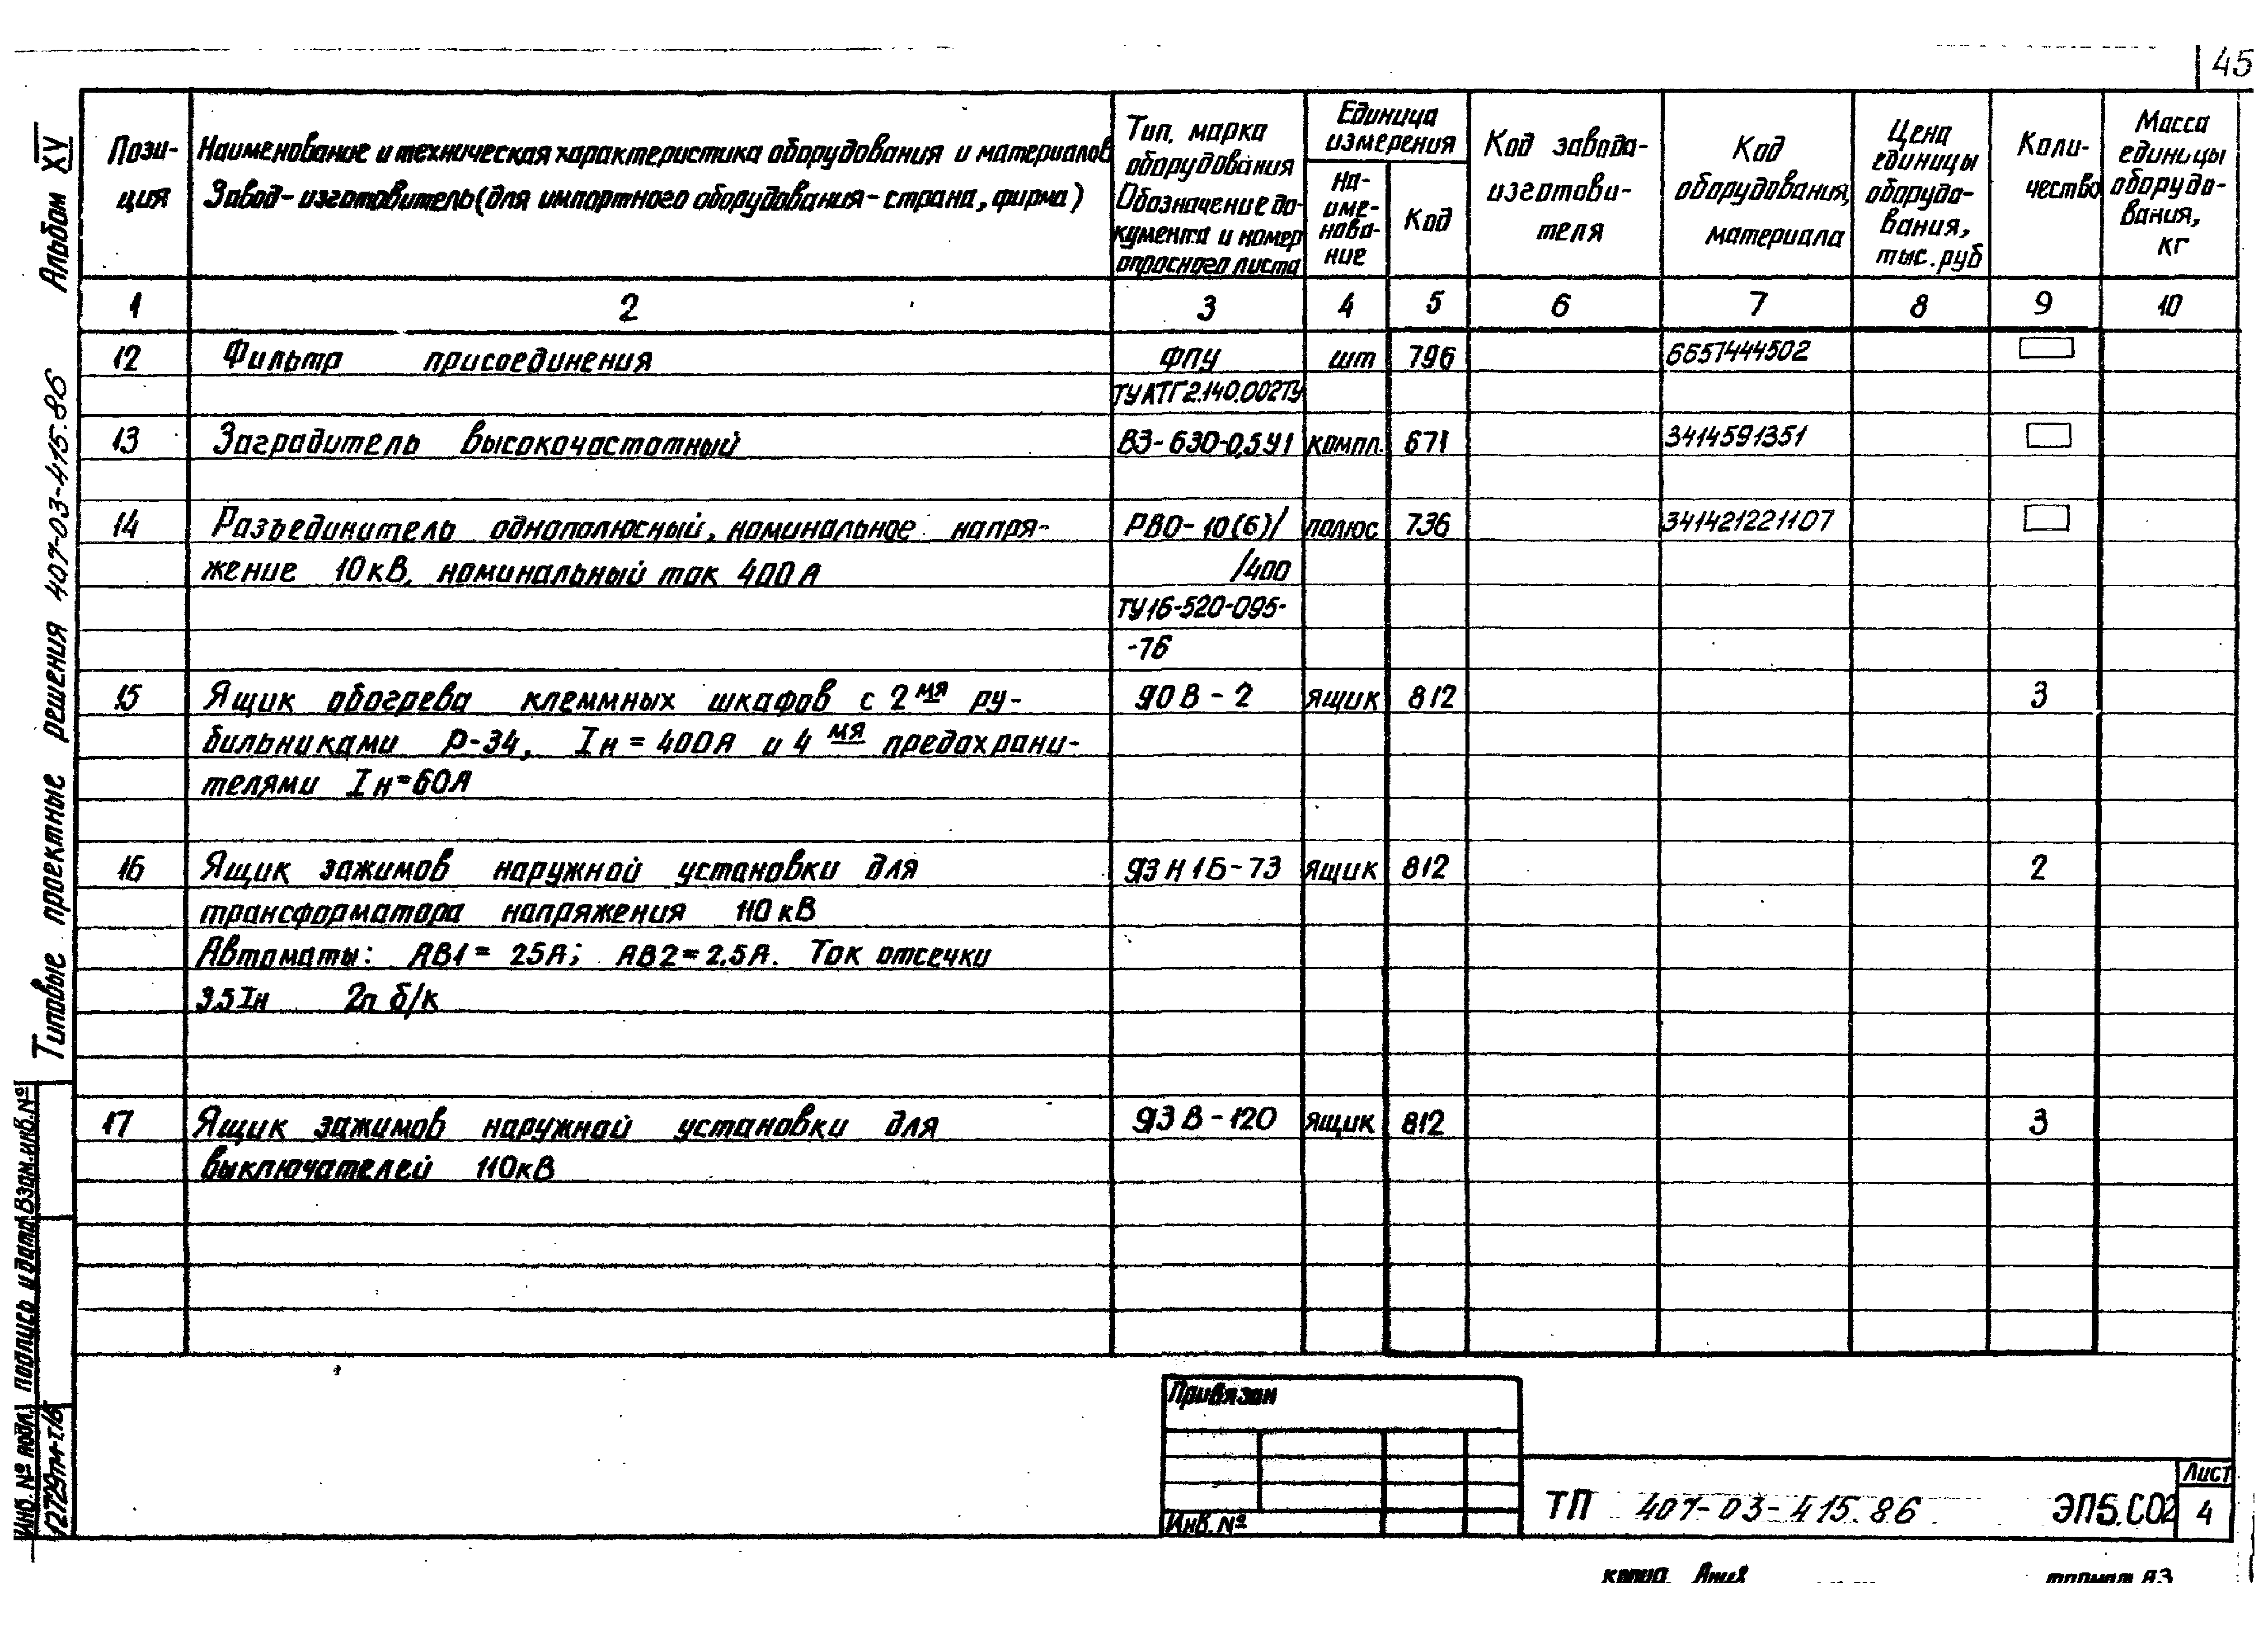 45
Альбом XV
Типовые проектные решения 407-03-415.86
Пози-
ция
Наименование и техническая характеристика оборудования и материалов
Завод-изготовитель (для импортного оборудования-страна, фирма)
Тип, марка
оборудования
Обозначение до-
кумента и номер
опросного листа
Единица
измерения
На-
име-
нова-
ние
Код
Код завода-
изготови-
теля
Код
оборудования,
материала
Цена
единицы
оборудо-
вания,
тыс.руб
Коли-
чество
Масса
единицы
оборудо-
вания,
кг
1 2 3 4 5 6 7 8 9 10
12 Фильтр присоединения ФПУ шт 796 6657444502
ТУАТГ2.140.002ТУ
13 Заградитель высокочастотный ВЗ-630-0,5У1 компл. 671 3414591351
14 Разъединитель однополюсный, номинальное напря- РВО-10(6)/ полюс 736 341421221107
жение 10кВ, номинальный ток 400А /400
ТУ16-520-095-
-76
15 Ящик обогрева клеммных шкафов с 2мя ру- ЯОВ-2 ящик 812 3
бильниками Р-34, Iн=400А и 4мя предохрани-
телями Iн=60А
16 Ящик зажимов наружной установки для ЯЗН1Б-73 ящик 812 2
трансформатора напряжения 110кВ
Автоматы: АВ1= 25А; АВ2=2.5А. Ток отсечки
3.5Iн 2п б/к
17 Ящик зажимов наружной установки для ЯЗВ-120 ящик 812 3
выключателей 110кВ
Инв.№ подл. Подпись и дата Взам.инв.№
Привязан
Инв.№
ТП 407-03-415.86 ЭП5.С02
Лист
4
копия
формат А3